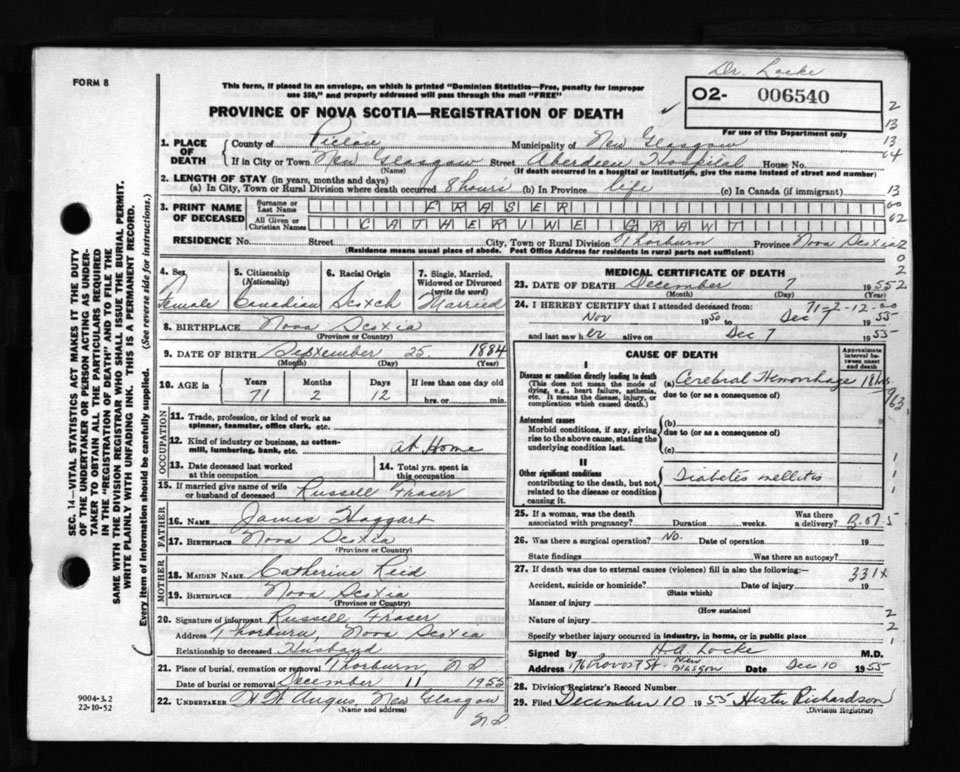 FORM 8
Dr. Locke
This form, if placed in an envelope, on which is printed "Dominion Statistics—Free, penalty for improper
use $50," and properly addressed will pass through the mail "FREE"
O2- 006540
For use of the Department only
PROVINCE OF NOVA SCOTIA—REGISTRATION OF DEATH
1. PLACE OF DEATH
County of Pictou Municipality of New Glasgow
If in City or Town New Glasgow Street Aberdeen Hospital House No.
(Name) (If death occurred in a hospital or institution, give the name instead of street and number)
2. LENGTH OF STAY (in years, months and days)
(a) In City, Town or Rural Division where death occurred 8 hours (b) In Province life (c) In Canada (if immigrant)
3. PRINT NAME OF DECEASED
Surname or Last Name FRASER
All Given or Christian Names CATHERINE GRANT
RESIDENCE No. Street City, Town or Rural Division Thorburn Province Nova Scotia
(Residence means usual place of abode. Post Office Address for residents in rural parts not sufficient)
4. Sex Female
5. Citizenship (Nationality) Canadian
6. Racial Origin Scotch
7. Single, Married, Widowed or Divorced (write the word) Married
8. BIRTHPLACE Nova Scotia
(Province or Country)
9. DATE OF BIRTH September 25 1884
(Month) (Day) (Year)
10. AGE in Years 71 Months 2 Days 12 If less than one day old hrs. or min.
OCCUPATION
11. Trade, profession, or kind of work as
spinner, teamster, office clerk, etc.
12. Kind of industry or business, as cotton-
mill, lumbering, bank, etc. at Home
13. Date deceased last worked at this occupation
14. Total yrs. spent in this occupation
15. If married give name of wife
or husband of deceased Russell Fraser
FATHER
16. NAME James Haggart
17. BIRTHPLACE Nova Scotia
(Province or Country)
MOTHER
18. MAIDEN NAME Catherine Reid
19. BIRTHPLACE Nova Scotia
(Province or Country)
20. Signature of informant Russell Fraser
Address Thorburn, Nova Scotia
Relationship to deceased Husband
21. Place of burial, cremation or removal Thorburn, N.S
Date of burial or removal December 11 1955
22. UNDERTAKER H W Angus, New Glasgow
(Name and address) N.S
MEDICAL CERTIFICATE OF DEATH
23. DATE OF DEATH December 7 1955
(Month) (Day) (Year)
71-2-12.00
24. I HEREBY CERTIFY that I attended deceased from:
Nov 1950 to Dec 7 1955
and last saw h er alive on Dec 7 1955
CAUSE OF DEATH
Approximate interval between onset and death
I
Disease or condition directly leading to death
(This does not mean the mode of dying, e.g., heart failure, asthenia, etc. It means the disease, injury, or complication which caused death.)
(a) Cerebral Hemorrhage 18 hrs.
due to (or as a consequence of)
963
Antecedent causes
Morbid conditions, if any, giving rise to the above cause, stating the underlying condition last.
(b)
due to (or as a consequence of)
(c)
II
Other significant conditions
contributing to the death, but not related to the disease or condition causing it.
Diabetes mellitis
25. If a woman, was the death associated with pregnancy? Duration weeks. Was there a delivery?
26. Was there a surgical operation? No. Date of operation 19
State findings Was there an autopsy?
27. If death was due to external causes (violence) fill in also the following:— 331x
Accident, suicide or homicide? Date of injury 19
(State which)
Manner of injury
(How sustained)
Nature of injury
Specify whether injury occurred in industry, in home, or in public place
Signed by H.A. Locke M.D.
Address 176 Provost St. New Glasgow Date Dec 10 1955
28. Division Registrar's Record Number
29. Filed December 10 1955 Hester Richardson
(Division Registrar)
SEC. 14—VITAL STATISTICS ACT MAKES IT THE DUTY
OF THE UNDERTAKER OR PERSON ACTING AS UNDER-
TAKER TO OBTAIN ALL THE PARTICULARS REQUIRED
IN THE "REGISTRATION OF DEATH" AND TO FILE THE
SAME WITH THE DIVISION REGISTRAR WHO SHALL ISSUE THE BURIAL PERMIT.
WRITE PLAINLY WITH UNFADING INK. THIS IS A PERMANENT RECORD.
Every item of information should be carefully supplied. (See reverse side for instructions.)
9004-3.2
22-10-52